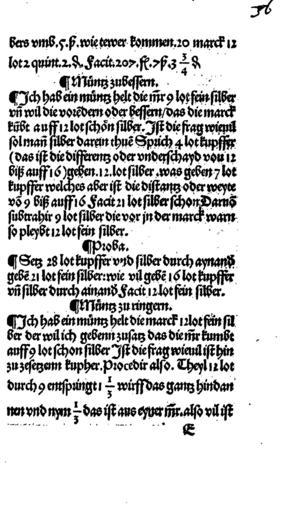 36
bers vmb.5.ꝑ.wie tewer kommen.20 marck 12
lot 2 quint.2.₰.Facit.207.fl.7ꝑ.3 3/4 ₰
¶Müntz zubessern.
¶Ich hab ein müntz helt die m̄r 9 lot fein silber
vñ wil die vorēdern oder bessern/das die marck
kübt auff 12 lot schön silber. Ist die frag wieuil
sol mañ silber darein thuē Sprich 4 lot kupffer
(das ist die differentz oder vnderschayd von 12
biß auff 16)geben.12.lot silber.was geben 7 lot
kupffer welches aber ist die distantz oder weyte
vō 9 biß auff 16 Facit 21 lot silber schon Darnō
subtrahir 9 lot silber die vor in der marck warn
so pleybt 12 lot fein silber.
¶Proba.
¶Setz 28 lot kupffer vnd silber durch aynand̄
gebē 21 lot fein silber:wie vil gebē 16 lot kupffer
vñ silber durch ainand̄ Facit 12 lot fein silber.
¶Müntz zu ringern.
¶Ich hab ein müntz helt die marck 12lot fein sil
ber der wil ich gebenn zusatz das die m̄r kumbt
auff 9 lot schon silber Ist die frag wieuil ist hin
zu zesetzenn kupher.Procedir also. Theyl 12 lot
durch 9 entspringt 1 1/3 wirff das gantz hindan
nen vnd nym 1/3 das ist aus eyner m̄r.also vil ist
E